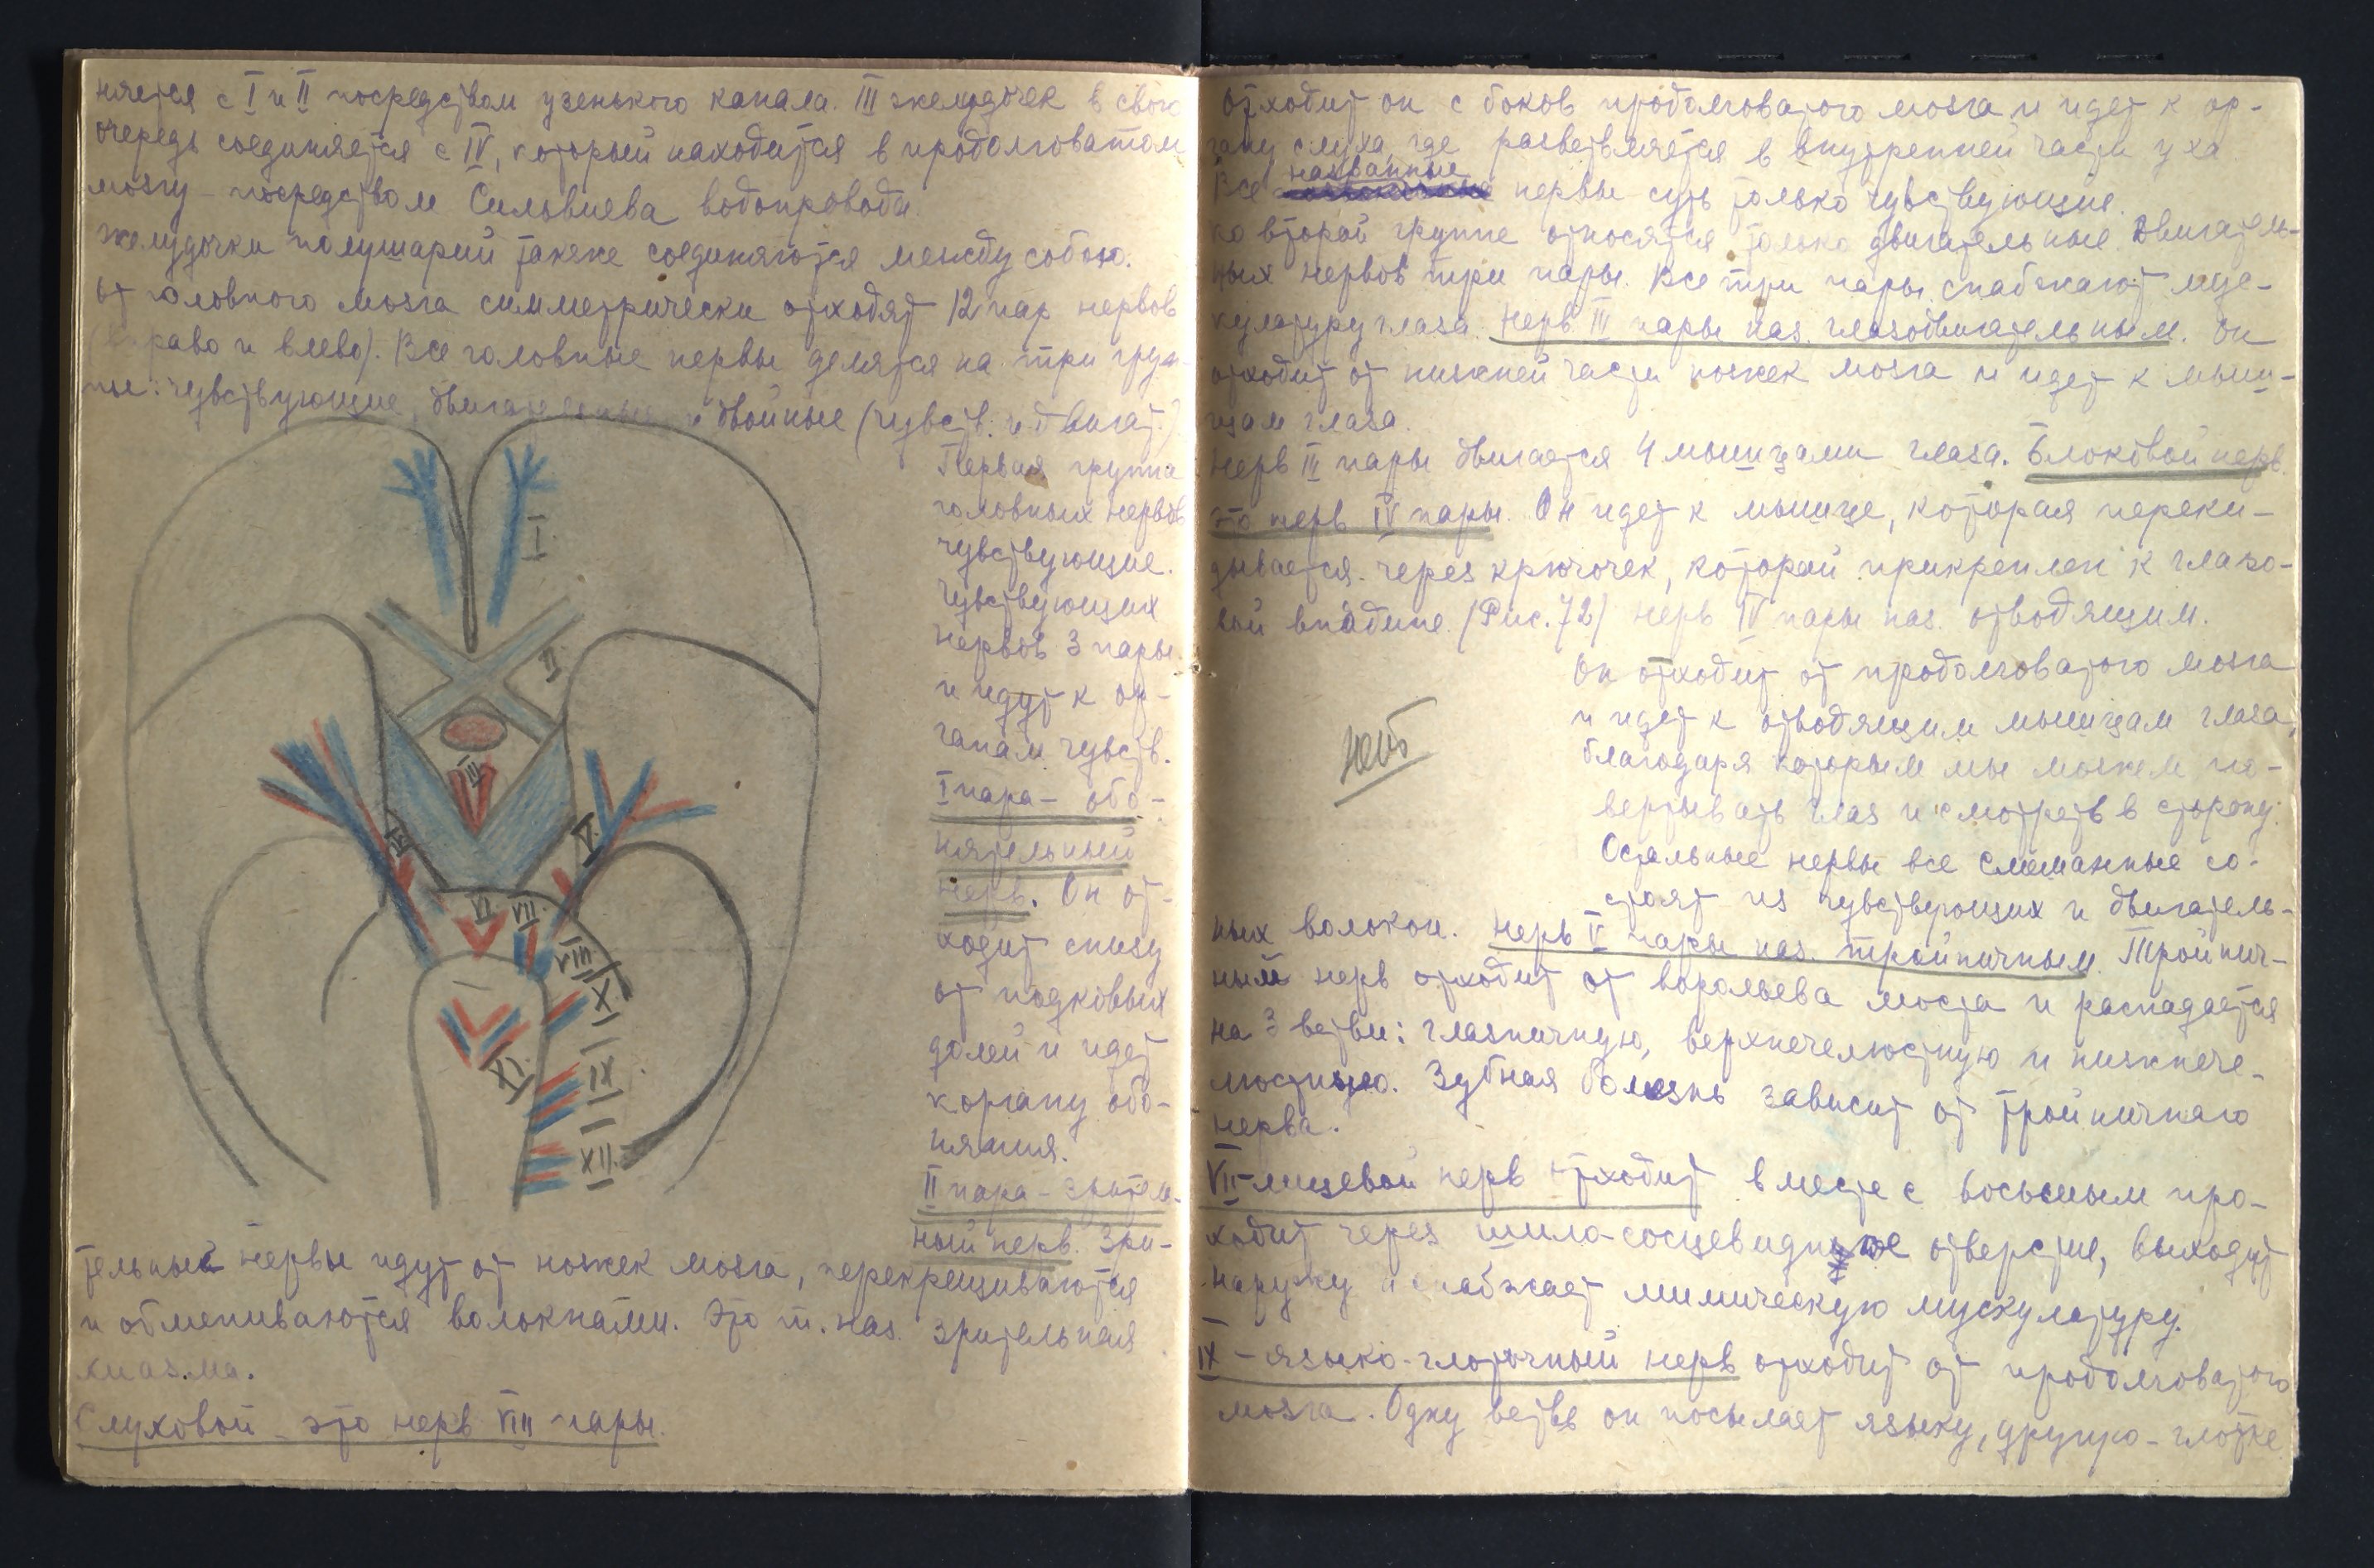 няется с I и II посредством узенького канала. III желудочек в свою
очередь соединяется с IV, который находится в продолговатом
мозгу – посредством Сильвиева водопровода.
желудочки полушарий также соединяются между собою.
от головного мозга симметрически отходят 12 пар нервов
(вправо и влево). Все головные нервы делятся на три груп-
пы: чувствующие, двигательные и двойные (чувств. и двигат.)
Первая группа
головных нервов
чувствующие.
Чувствующих
нервов 3 пары
и идут к ор-
ганам чувств.
I пара – обо-
нятельный
нерв. Он от-
ходит снизу
от
долей и идет
к органу обо-
няния.
II пара – зритель-
ный нерв. Зри-
тельные нервы идут от ножек мозга, перекрещиваются
и обмениваются волокнами. Это т. наз. зрительная
хиазма.
Слуховой – это нерв VIII пары.
I
II
III
IV
V
VI
VII
VIII
X
IX
XI
XII
отходит он с боков продолговатого мозга и идет к ор-
гану слуха, где разветвляется в внутренней части уха
названные
Все нервы суть только чувствующие.
ко второй группе относятся только двигательные. Двигатель-
ных нервов три пары. Все три пары снабжают мус-
кулатуру глаза. Нерв III пары наз. глазодвигательным. Он
отходит от нижней части ножек мозга и идет к мыш-
цам глаза.
Нерв III пары двигается 4 мышцами глаза. Блоковой нерв.
это нерв IV пары. Он идет к мышце, которая переки-
дывается через крючочек, который прикреплен к глазо-
вой впадине (Рис. 72) нерв IV пары наз. отводящим.
Он отходит от продолговатого мозга
и идет к отводящим мышцам глаза,
благодаря которым мы можем по-
вертывать глаз и смотреть в сторону.
Остальные нервы все смешанные со-
стоят из чувствующих и двигатель-
ных волокон. Нерв V пары наз. тройничным. Тройнич-
ный нерв отходит от варольева моста и распадается
на 3 ветви: глазничную, верхнечелюстную и нижнече-
люстную. Зубная болезнь зависит от тройничнаго
нерва.
VII – лицевой нерв отходит вместе с восьмым про-
ходит через шило-сосцевидное отверстие, выходит
наружу и снабжает мимическую мускулатуру.
IX – языко-глоточный нерв отходит от продолговатого
мозга. Одну ветвь он посылает языку, другую – глотке